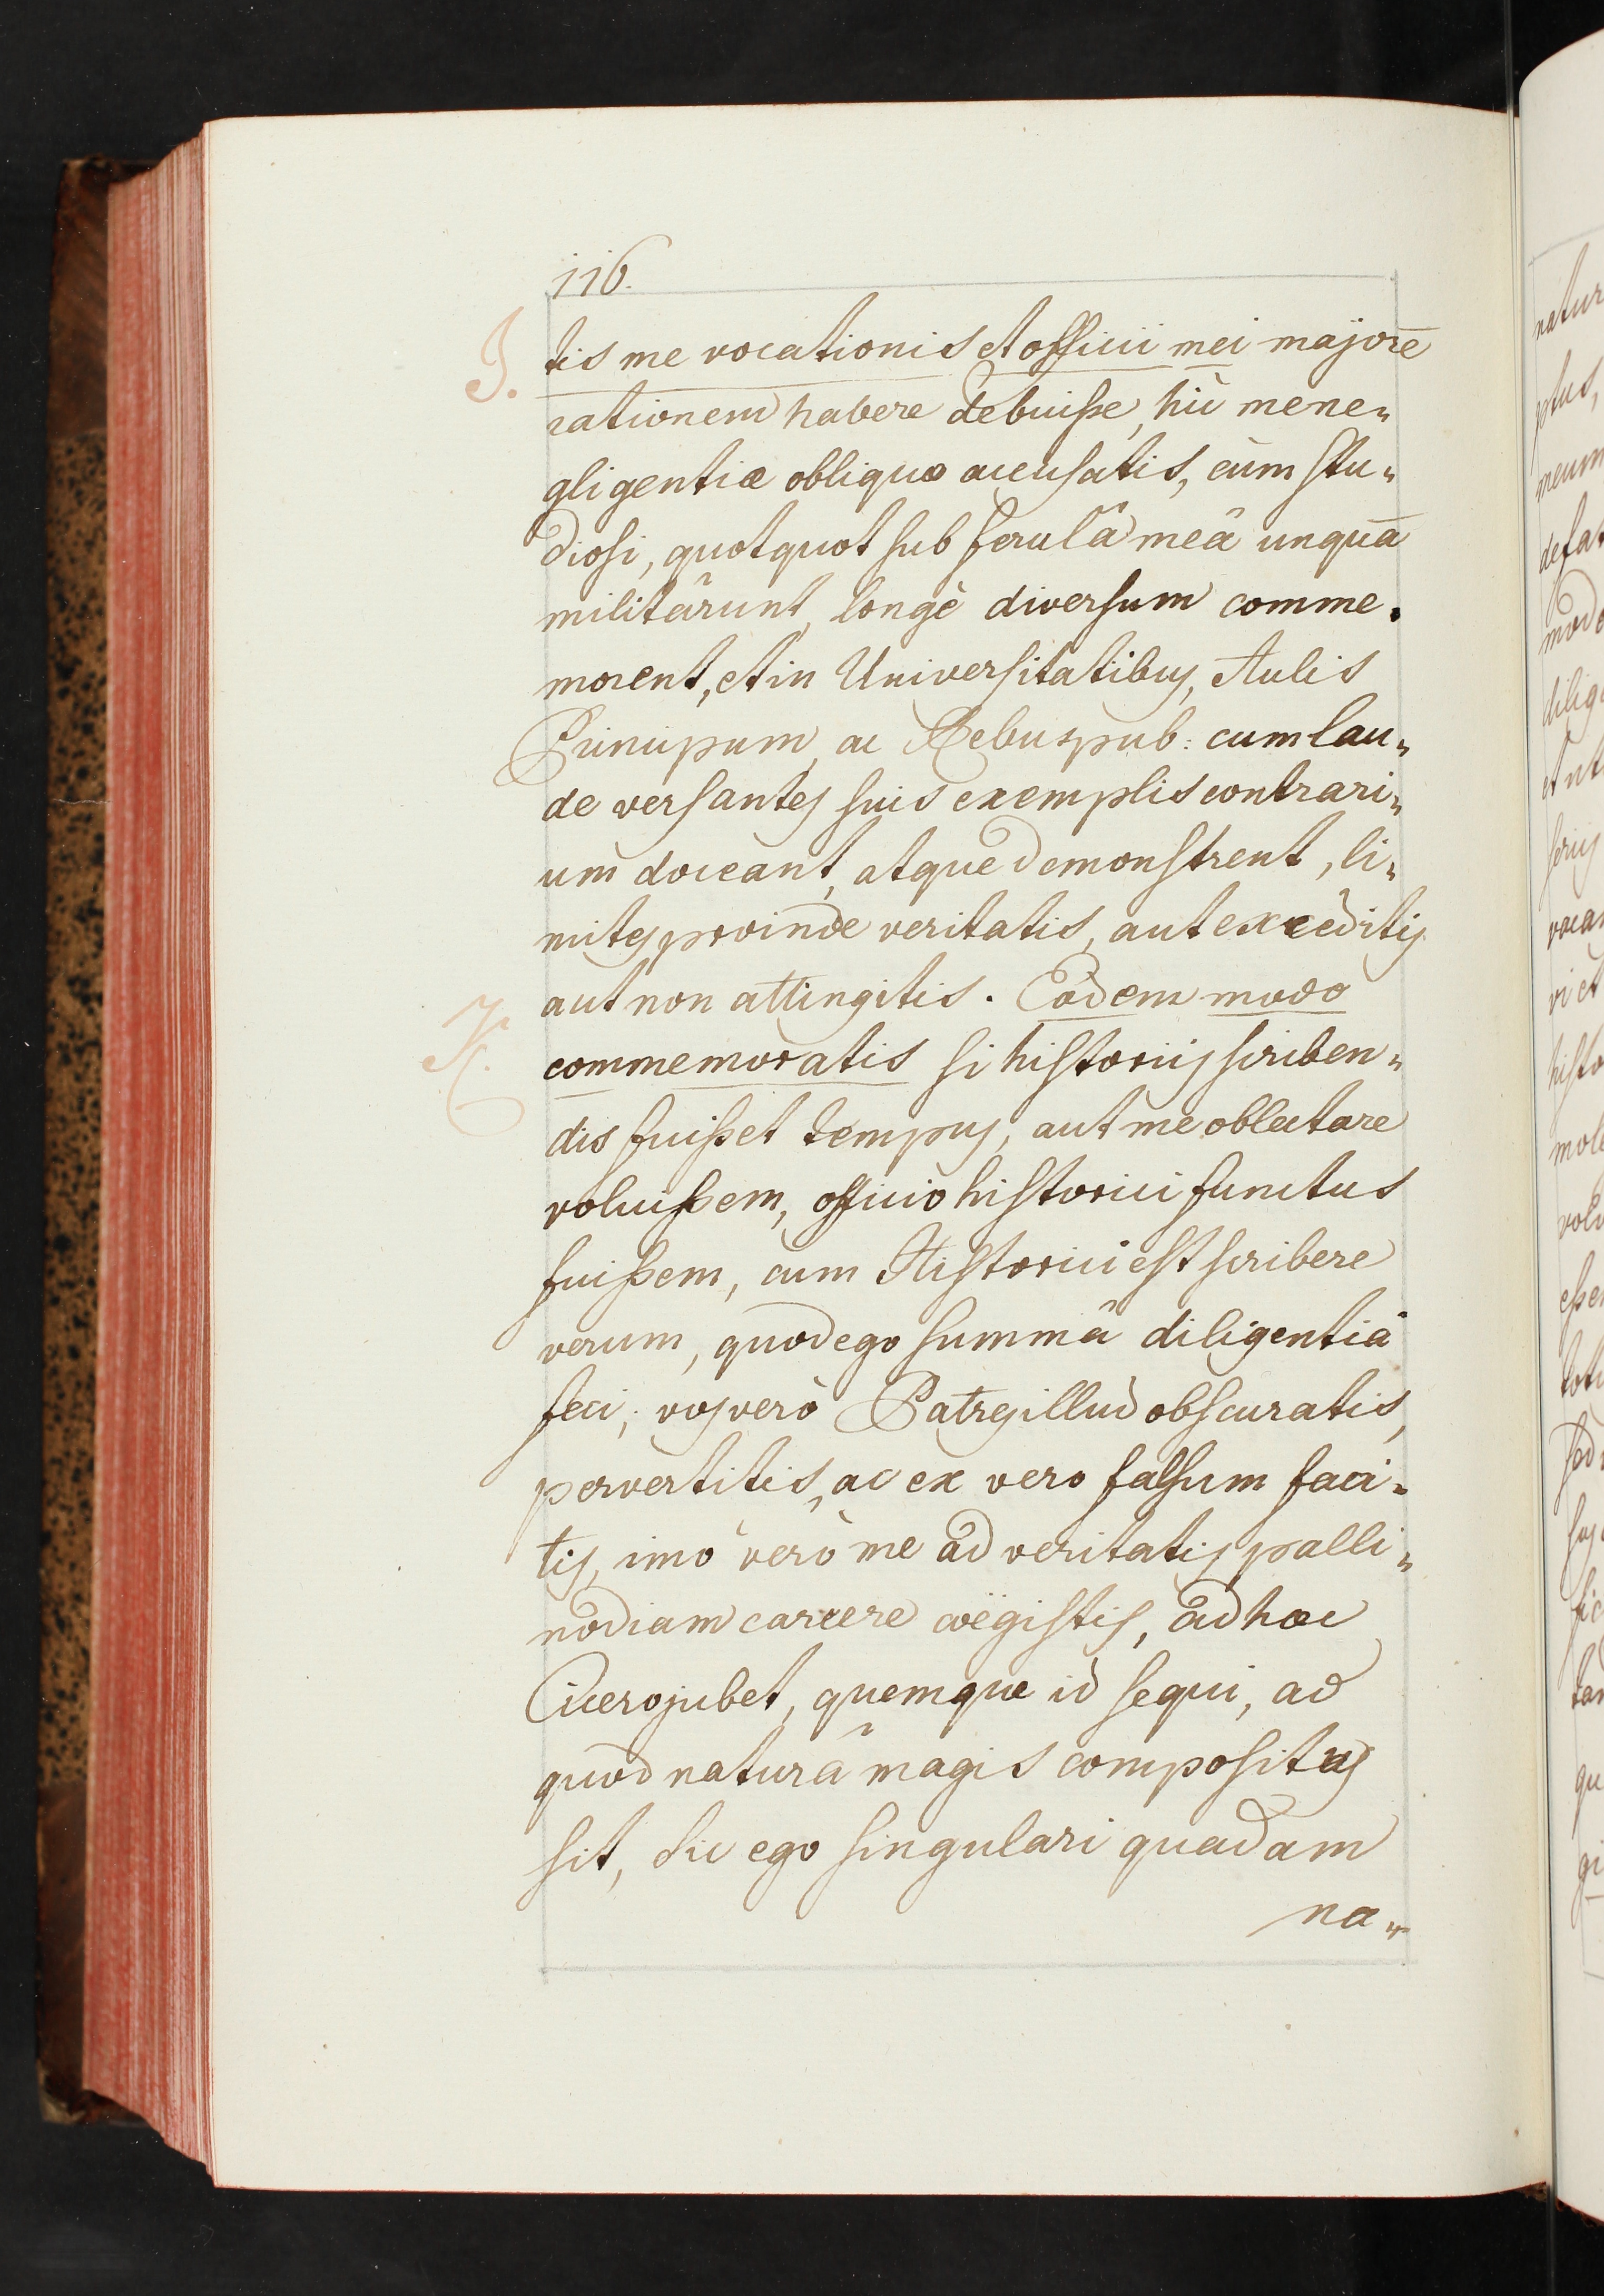 116.
J. tis me vocationis et officii mei majorē
rationem habere debuisse, hìc me ne„
gligentiæ obliquæ accusatis, cùm stu„
diosi, quotquot sub ferulâ meâ unquā
militârunt, longè diversum comme„
morent, et in Universitatibus, Aulis
Principum, ac Rebuspub: cum lau„
de versantes suis exemplis contrari„
um doceant, atque demonstrent, li„
mites proinde veritatis, aut exceditis
aut non attingitis. Eodem modo
K. commemoratis si historiis scriben„
dis fuisset tempus, aut me oblectare
voluissem, officiò historici functus
fuissem, cum Historici est scribere
verum, quod ego summâ diligentiâ
feci; vos verò Patres illud obscuratis,
pervertitis, ac ex vero falsum faci„
tis, imò verò me ad veritatis palli„
nodiam carcere coëgistis, ad hæc
Cicero jubet, quemque id sequi, ad
quod naturâ magis compositus
sit, sic ego singulari quadam
na„
natur
ptus,
meum
defat
modo
dilig
et ut
serus
vocat
vi et
histo
mole
volu
esse
totu
sed
sus
sic
tan
qu
gi